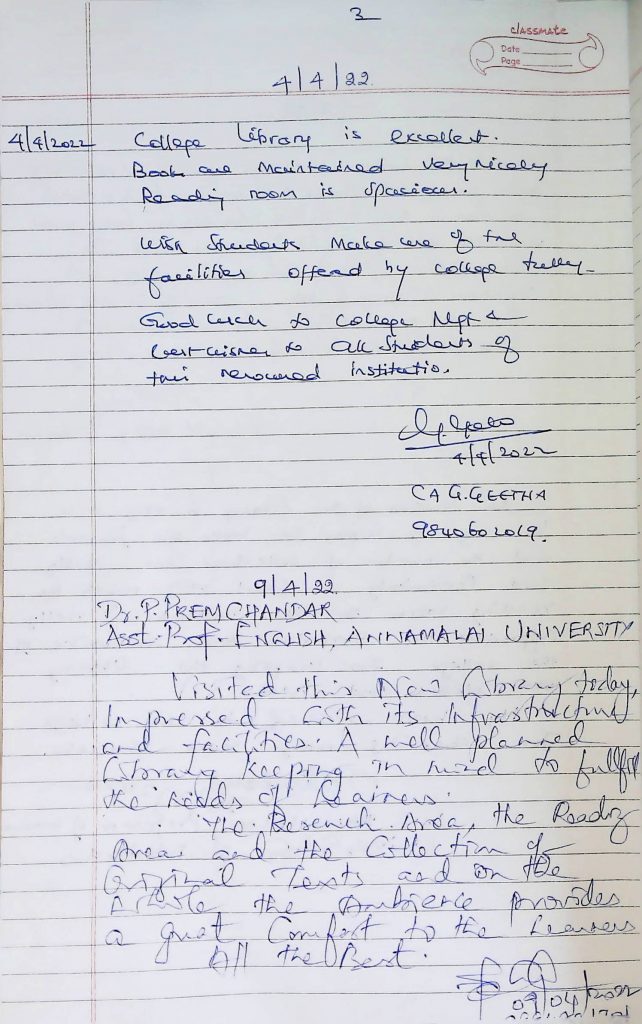 3
classmate
Date
Page
4/4/22
4/4/2022 College Library is excellent.
Book are Maintained very nicely
Reading room is spacious.
Wish Students Make use of the
facilities offered by college fully.
Good luck to College Mgt &
best wishes to all Students of
this renowned institution.
4/4/2022
CA G.GEETHA
9840602019.
9/4/22
Dr. P. PREMCHANDAR
Asst. Prof. ENGLISH, ANNAMALAI UNIVERSITY
Visited this New Library today,
Impressed with its Infrastructure
and facilities. A well planned
Library keeping in mind to fulfil
the needs of Learners.
The Research Area, the Reading
Area and the Collection of
Original Texts and on the
the Ambience provides
a great Comfort to the Learners
All the Best.
09/04/2022